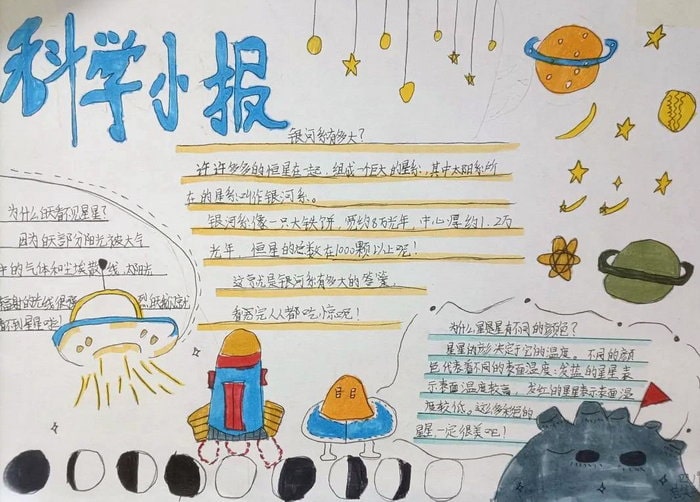 科学小报
银河系有多大?
许许多多的恒星在一起,组成一个巨大的星系,其中太阳系所
在的星系叫作银河系。
银河系像一只大铁饼,宽约8万光年,中心厚约1.2万
光年,恒星的总数在1000颗以上呢!
这就是银河系有多大的答案,
看完人人都吃惊呢!
为什么白天看不见星星?
因为白天部分阳光被大气
中的气体和尘埃散
太阳光
辐射的光线很强
看不到星星啦!
为什么星星有不同的颜色?
星星的颜色决定于它的温度。不同的颜
色代表着不同的表面温度:发蓝的星星表
示表面温度较高。发红的星星表示表面温
度较低。这么多彩色的
星星一定很美吧!